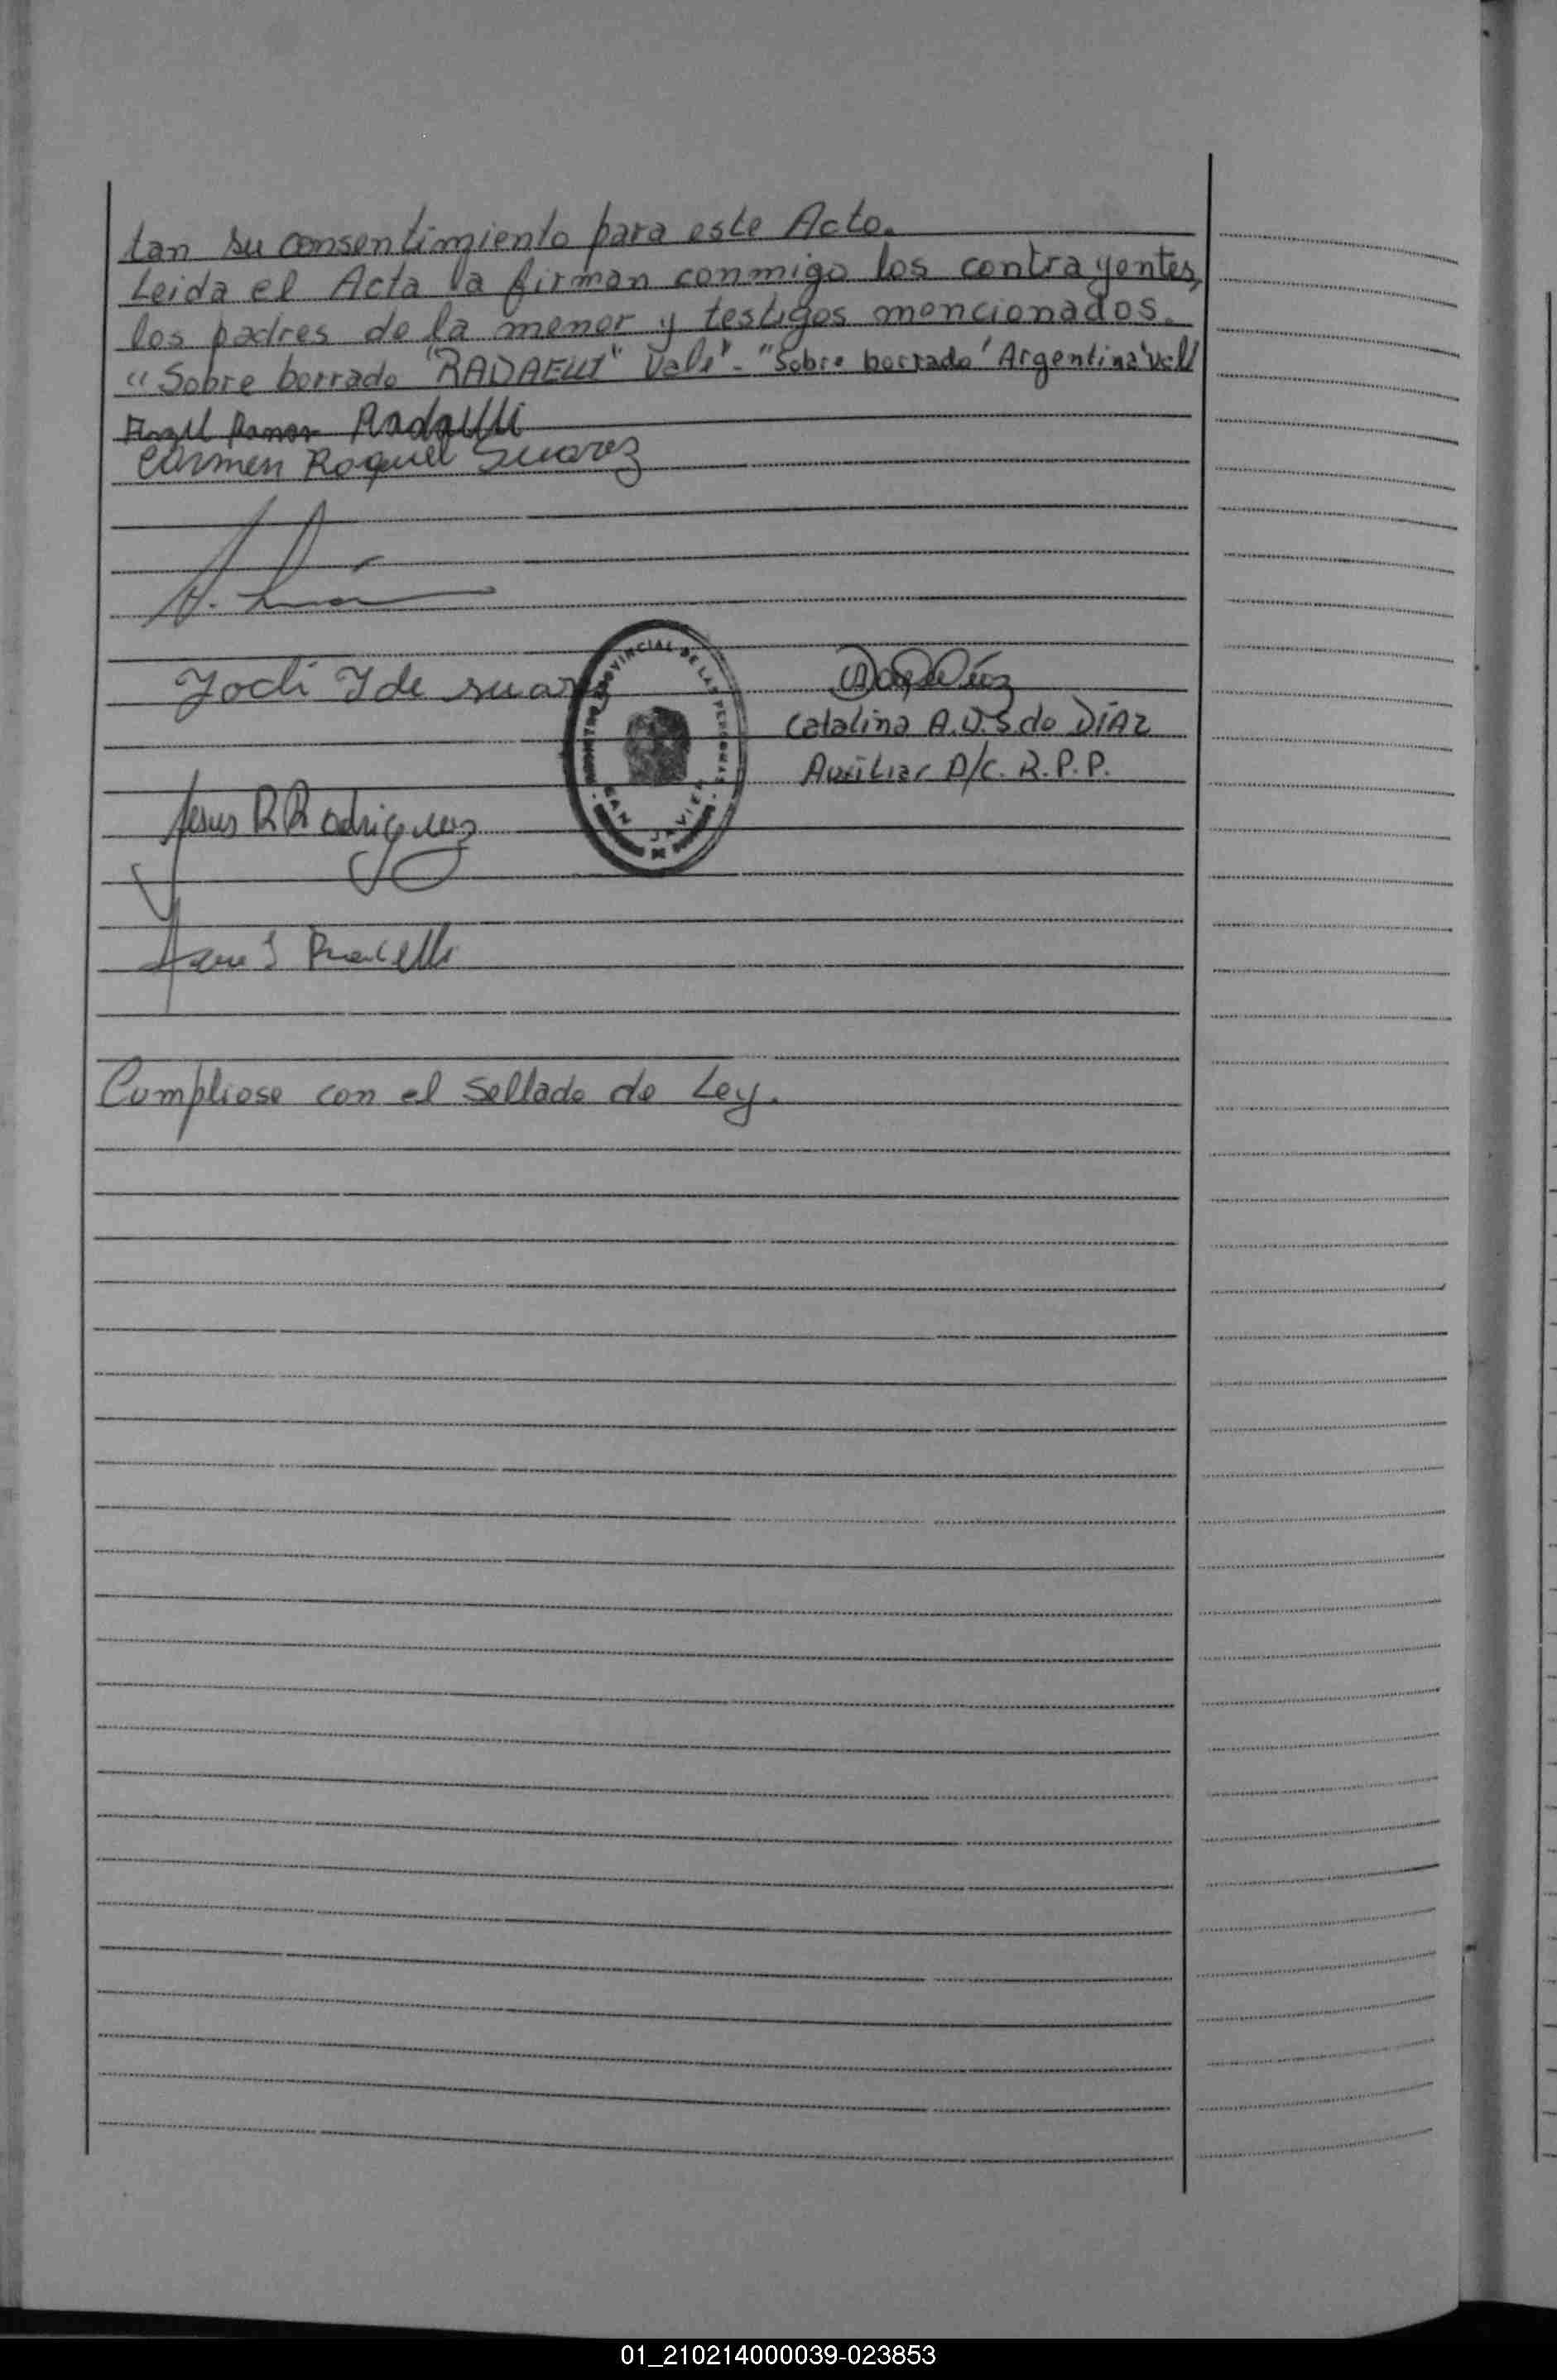 tan su consentimiento para este Acto.
Leida el Acta la firman conmigo los contrayentes,
los padres de la menor y testigos mencionados.
"Sobre borrado "RADAELLI" Vale"- "Sobre borrado 'Argentina' vale
Angel Ramon Radaelli
Carmen Raquel Suarez
Yodi Y de suarez
Catalina A.D.S de DIAZ
Auxiliar A/C. R.P.P.
REGISTRO PROVINCIAL DE LAS PERSONAS
SAN JAVIER
Jesus R Rodriguez
Cumpliose con el sellado de Ley.
01_210214000039-023853